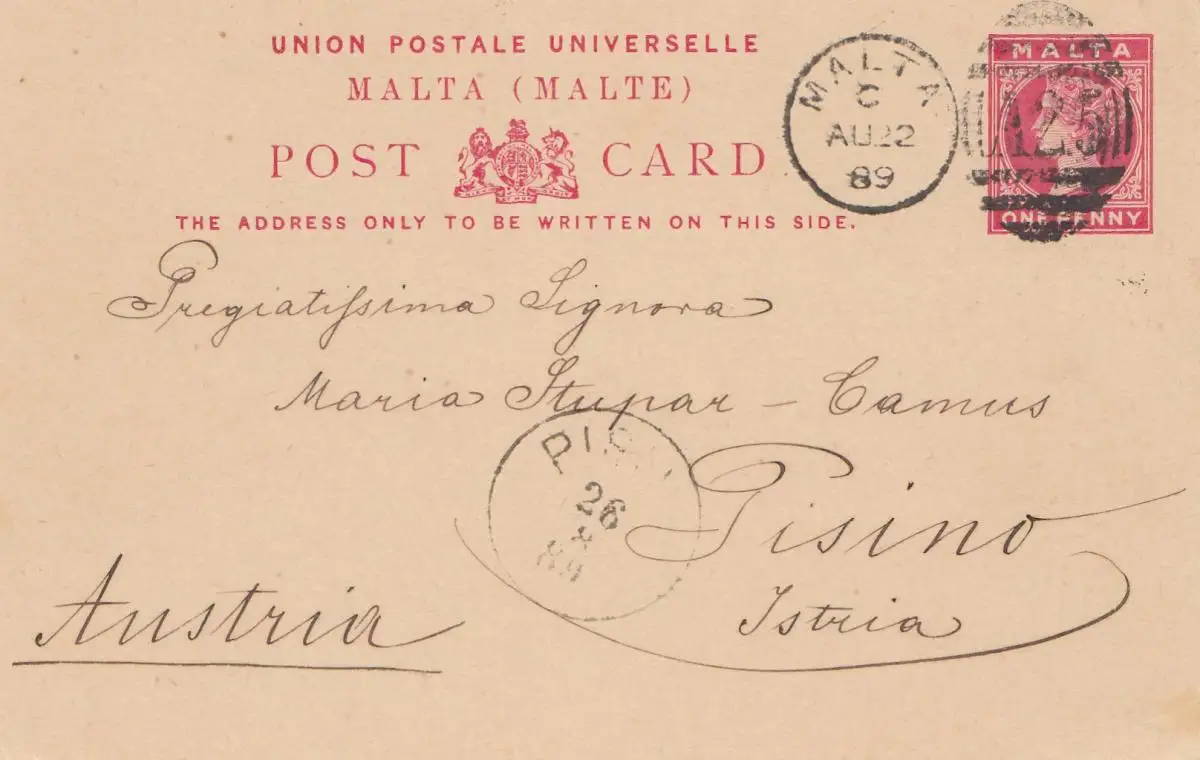 UNION POSTALE UNIVERSELLE
MALTA (MALTE)
POST CARD
THE ADDRESS ONLY TO BE WRITTEN ON THIS SIDE.
MALTA
C
AU22
89
A25
MALTA
ONE PENNY
Pregiatissima Signora
Maria Stupar - Camus
Pisino
Istria
Austria
26
89